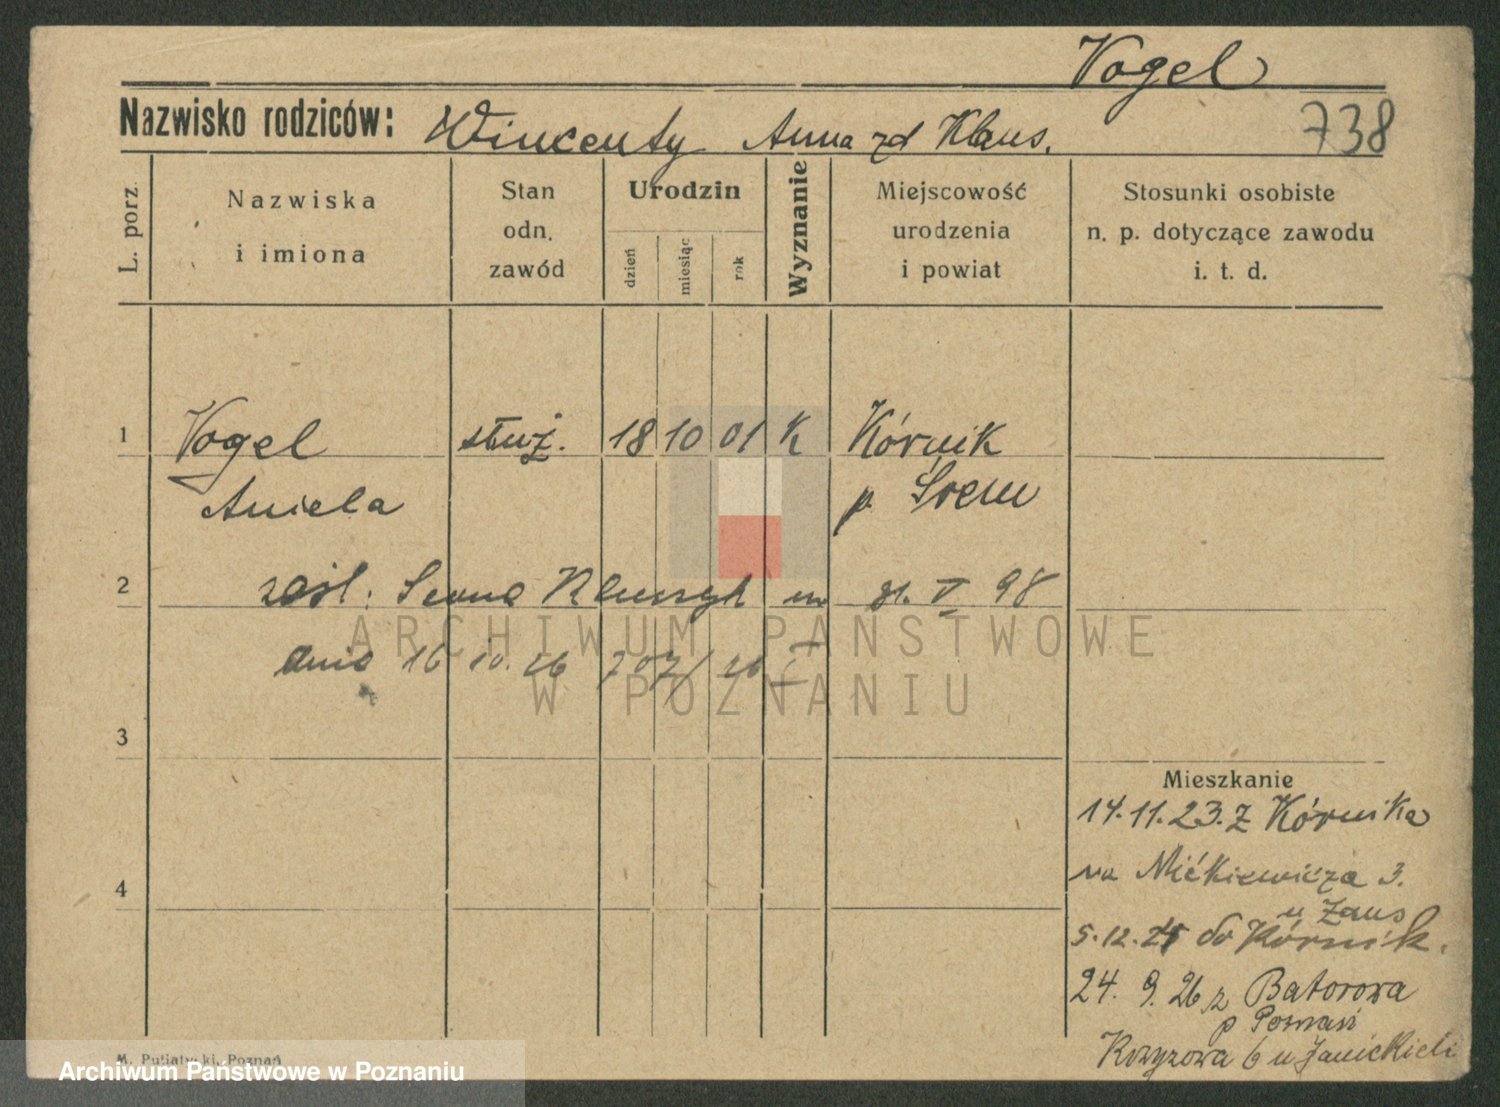 Vogel
Nazwisko rodziców: Wincenty Anna zd Klaus.
738
L. porz.
Nazwiska
i imiona
Stan
odn.
zawód
Urodzin
dzień
miesiąc
rok
Wyznanie
Miejscowość
urodzenia
i powiat
Stosunki osobiste
n. p. dotyczące zawodu
i. t. d.
1 Vogel służ. 18 10 01 K Kórnik
Aniela p. Śrem
2 zaśl. m 31. V 98
dnia 16 10. 26 707/26 I
3
Mieszkanie
14.11.23. z Kórnika
na Mickiewicza 3.
4
u Zaus
5.12.25 do Kórnik.
24. 9. 26 z Batorowa
p Poznań
Krzyżowa 6 u Janickich
M. Putiatycki, Poznań
ARCHIWUM PAŃSTWOWE
W POZNANIU
Archiwum Państwowe w Poznaniu